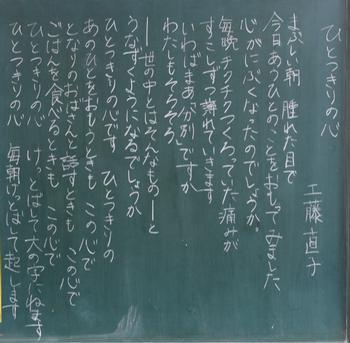 ひとつきりの心
工藤直子
まぶしい朝 腫れた目で
今日あのひとのことをおもってみました
心がにぶくなったのでしょうか
毎晩チクチクつくろっていた痛みが
すこしずつ薄れていきます
いわばまあ「分別」ですか
わたしもそろそろ
―世の中とはそんなもの―と
うなずくようになるでしょうか
ひとつきりの心です ひとつきりの
あのひとをおもうときも この心で
となりのおばさんと話すときも この心で
ごはんを食べるときも この心で
ひとつきりの心 けっとばして大の字にねます
ひとつきりの心 毎朝けっとばして起します